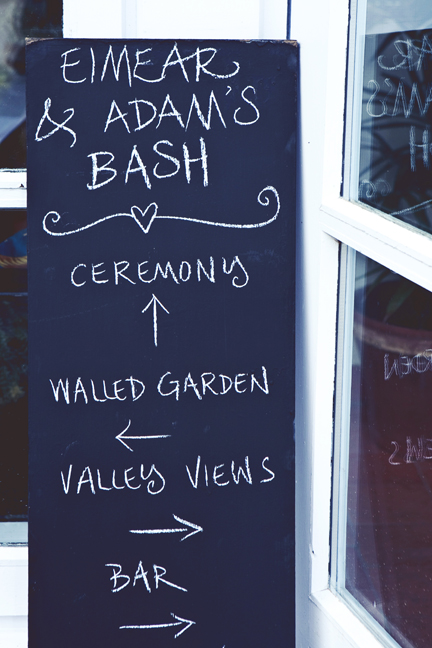 EIMEAR
& ADAM'S
BASH
CEREMONY
↑
WALLED GARDEN
←
VALLEY VIEWS
→
BAR
→